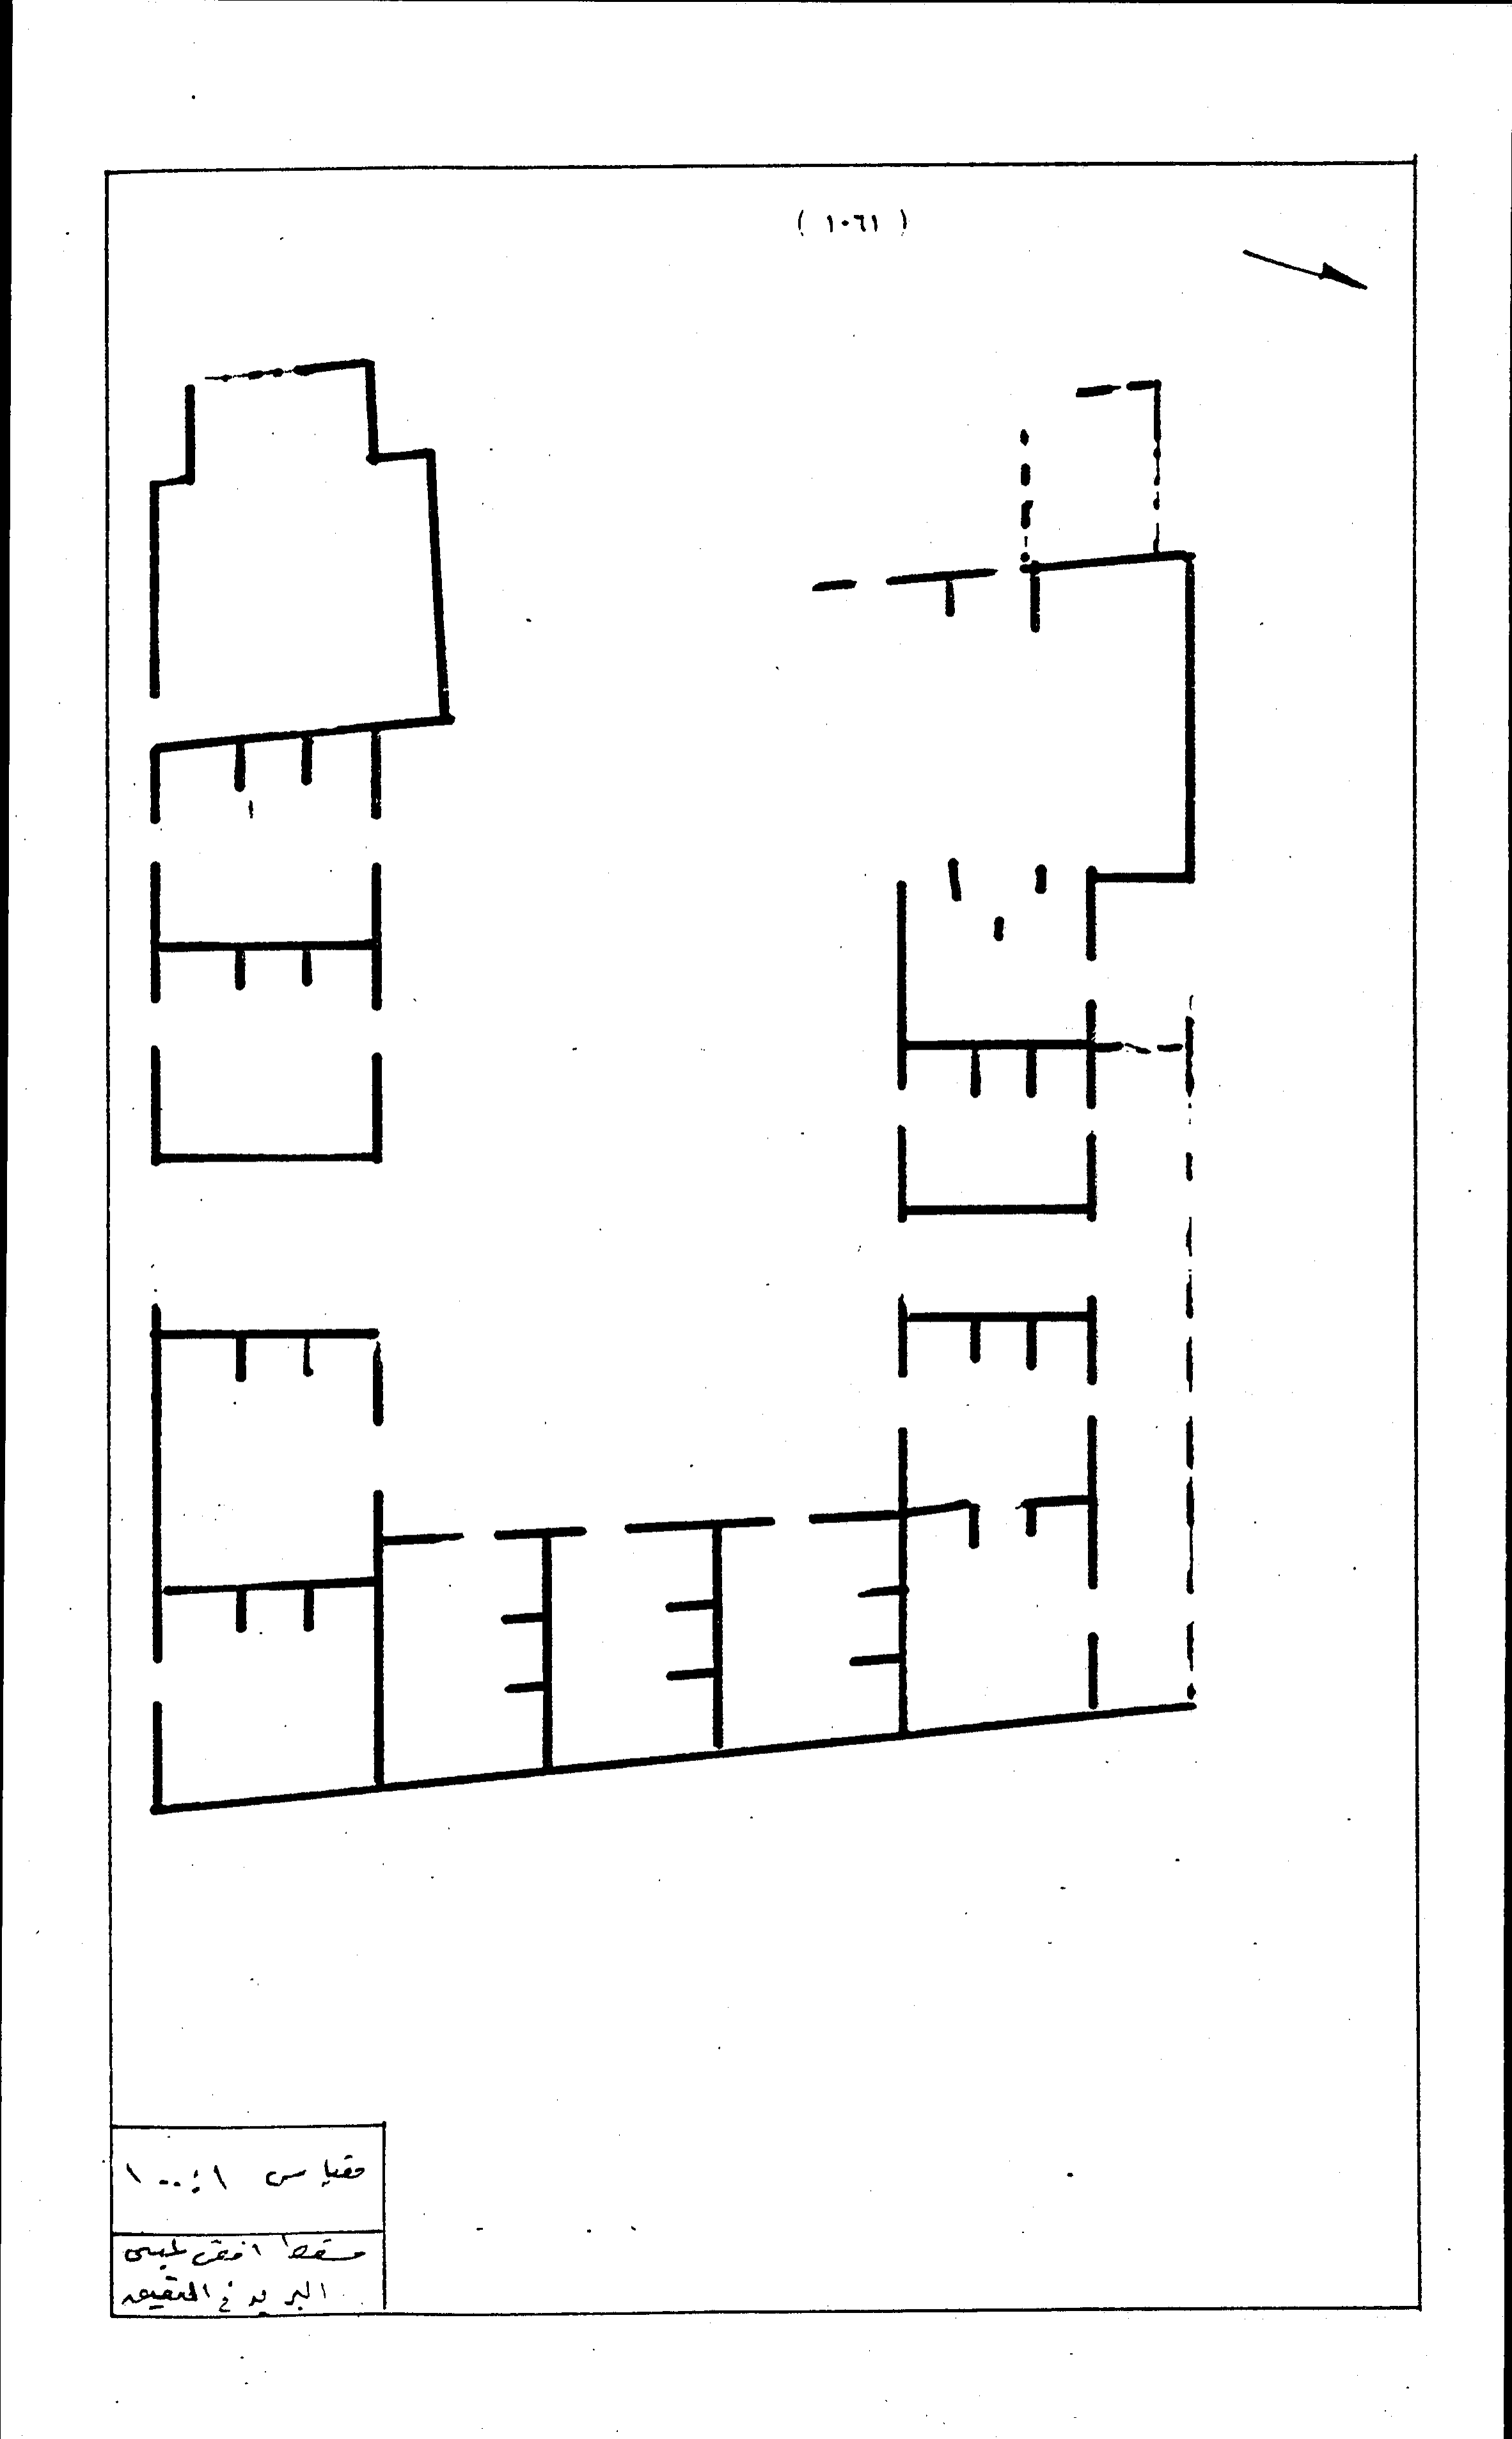 ( ١٠٦١ )
مقياس ١:١٠٠
مسقط افقى لمبنى
البريد في العقيق